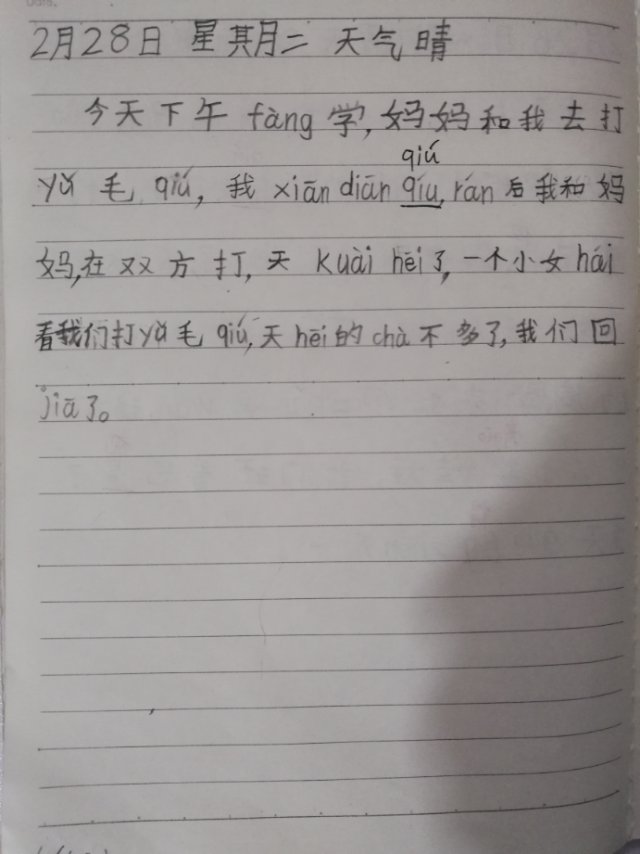 2月28日 星期二 天气晴
今天下午 fàng 学, 妈妈和我去打
qiú
yǔ 毛 qiú, 我 xiān diān qíu, rán 后我和妈
妈,在双方打, 天 kuài hēi了, 一个小女 hái
看我们打 yǔ 毛 qiú, 天 hēi 的 chà 不多了, 我们回
jiā了。